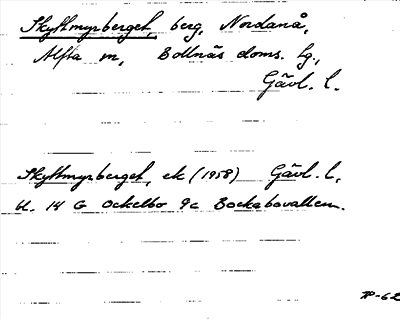 Skyttmyrberget, berg, Nordanå,
Alfta sn, Bollnäs doms. tg.,
Gävl. l.
Skyttmyrberget, ek (1958) Gävl. l,
bl. 14 G Ockelbo 9c Bockabovallen.
-62